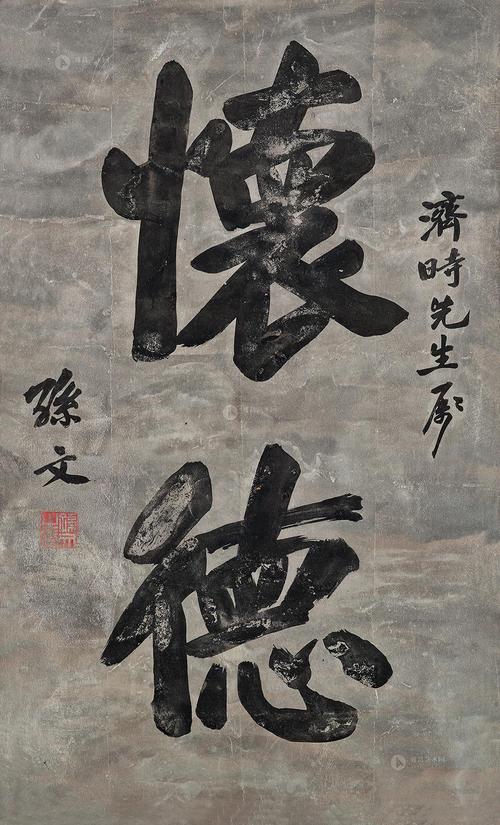 濟時先生屬
懷德
孫文